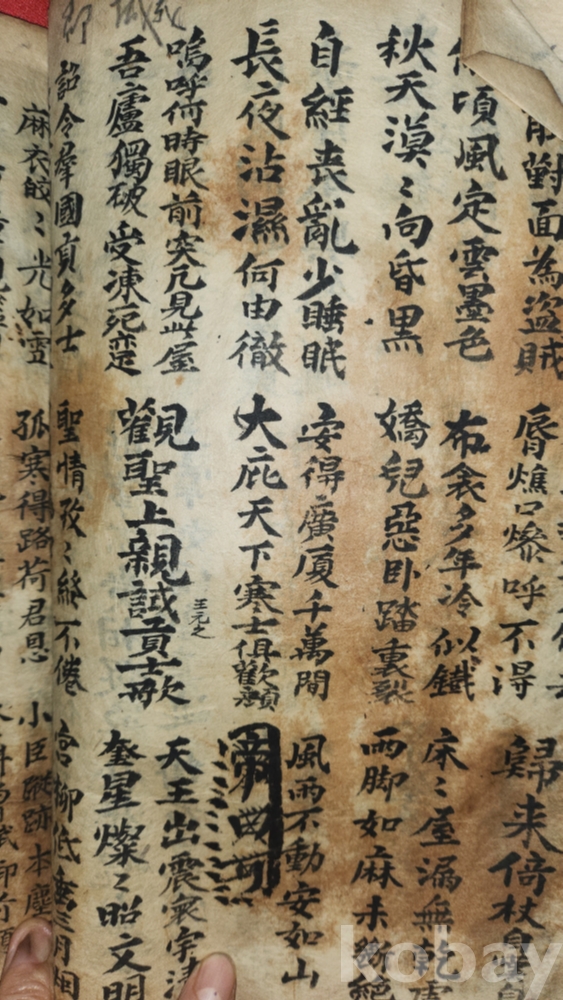 能對面為盜賊 脣燋口燥呼不得 歸来倚杖
頃風定雲墨色 布衾多年冷似鐵 床〻屋漏無乾
秋天漠〻向昏黑 嬌兒惡卧踏裏裂 雨脚如麻未斷絕
自經喪亂少睡眠 安得廣厦千萬間 風雨不動安如山
長夜沾濕何由徹 大庇天下寒士俱歡顔
嗚呼何時眼前突兀見此屋 王元之 天王出震寰宇清
吾廬獨破受凍死亦足 觀聖上親試貢士歌 奎星燦〻昭文明
詔令羣國貢多士 聖情孜〻終不倦 宮柳低垂三月烟
麻衣皎〻光如雪 孤寒得路荷君恩 小臣蹤跡本塵
kobay